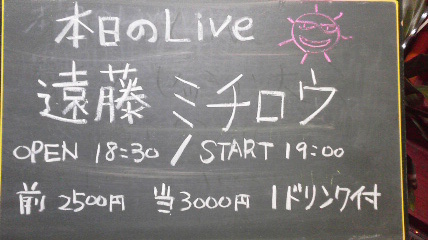 本日のLive
遠藤ミチロウ
OPEN 18:30 / START 19:00
前 2500円 当 3000円 1ドリンク付